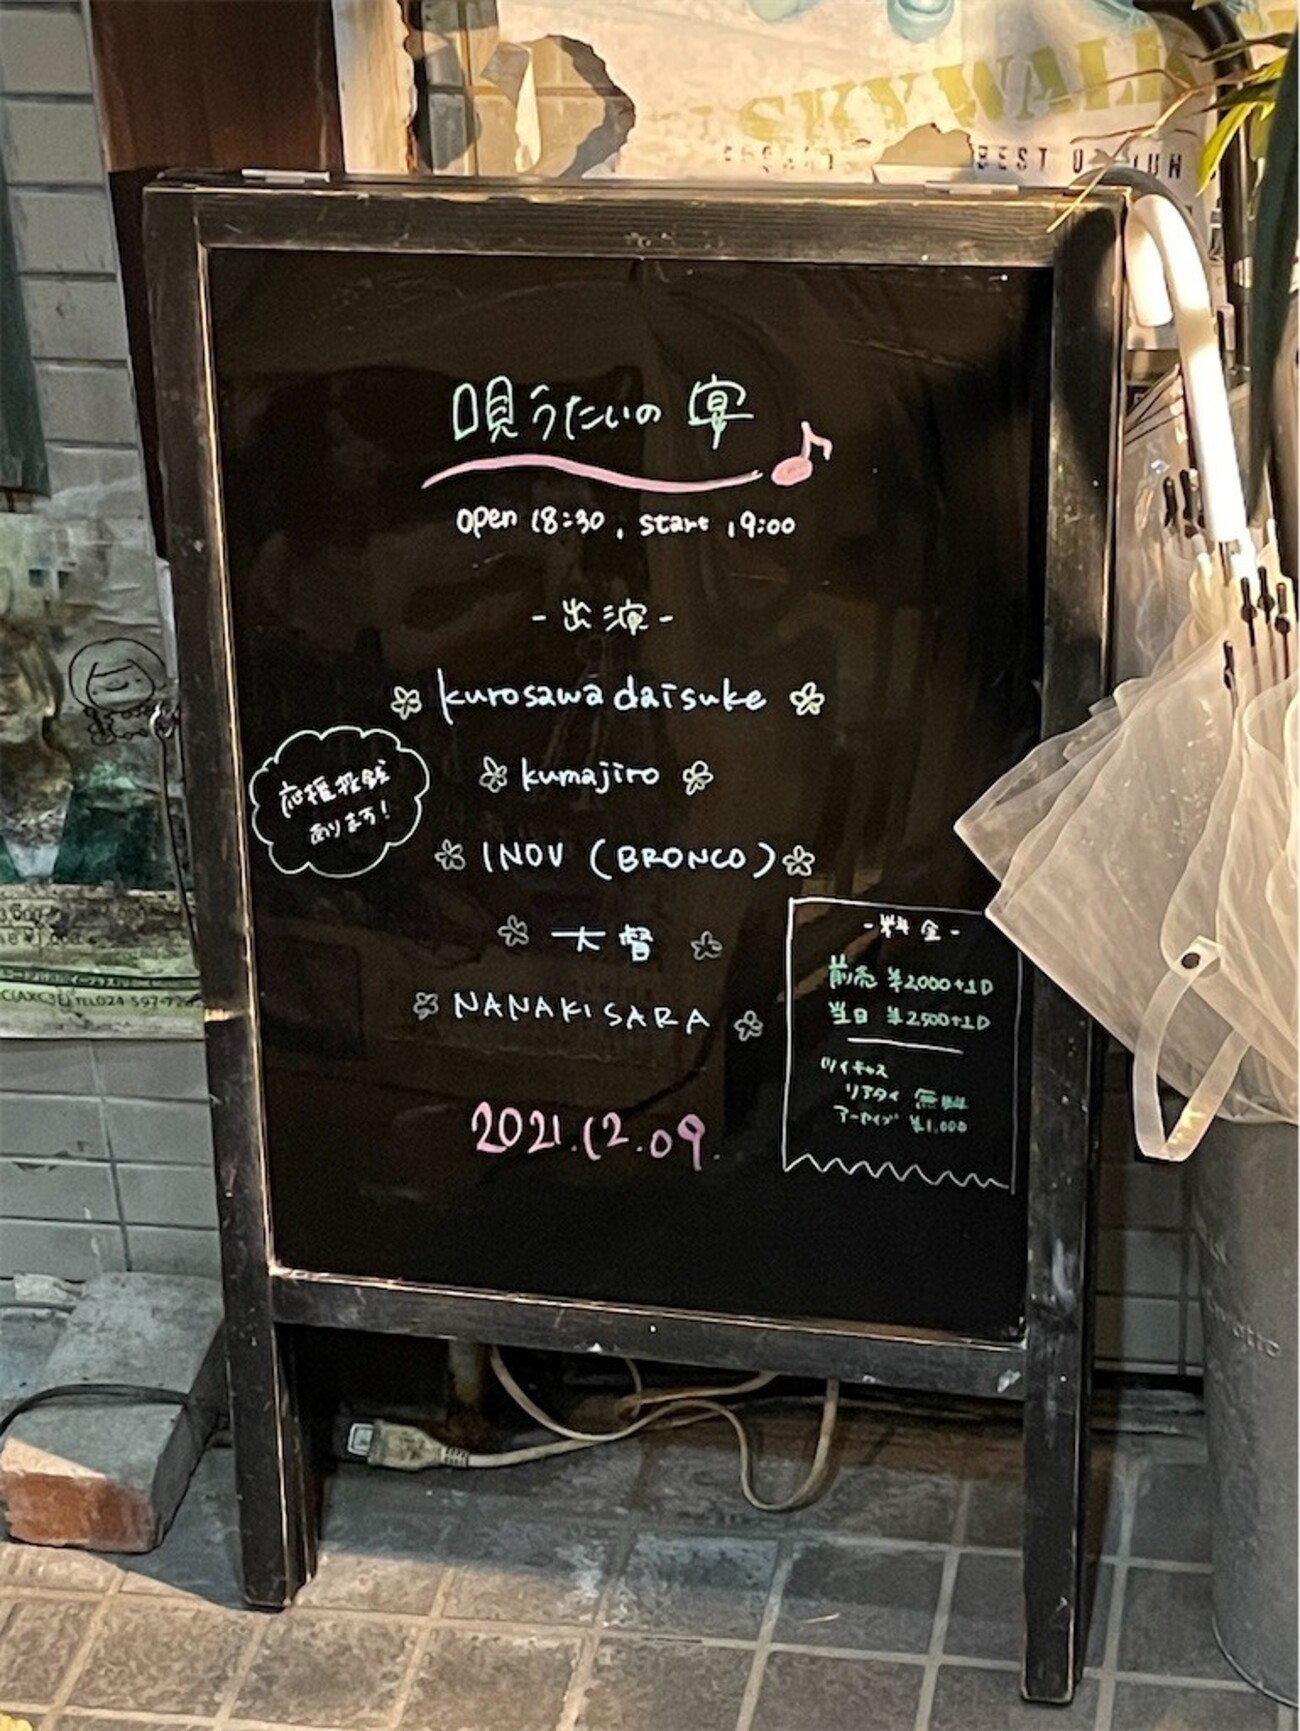 SKYWALK
BEST
唄うたいの宴
open 18:30, start 19:00
-出演-
kurosawa daisuke
kumajiro
応援投銭
あります!
INOV (BRONCO)
大督
NANAKI SARA
2021.12.09.
-料金-
前売 ¥2,000+1D
当日 ¥2500+1D
ツイキャス
リアタイ 無料
アーカイブ ¥1,000
TEL024-597-72